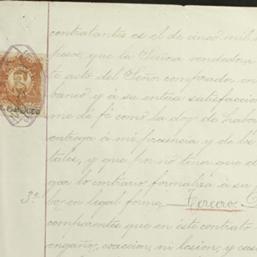 contratantes es el de cinco mil
pesos, que la Señora vendedora
te acto del Señor comprador en
bano y á su entera satisfaccion
mo de fé como la doy de haber
entrega á mi presencia y de los
tales, y que por no tener que
que lo contrario formaliza á su
bor en legal forma. Tercero.
3º.
comparentes que en este contrato
engaño, coaccion, ni lesion, y caso